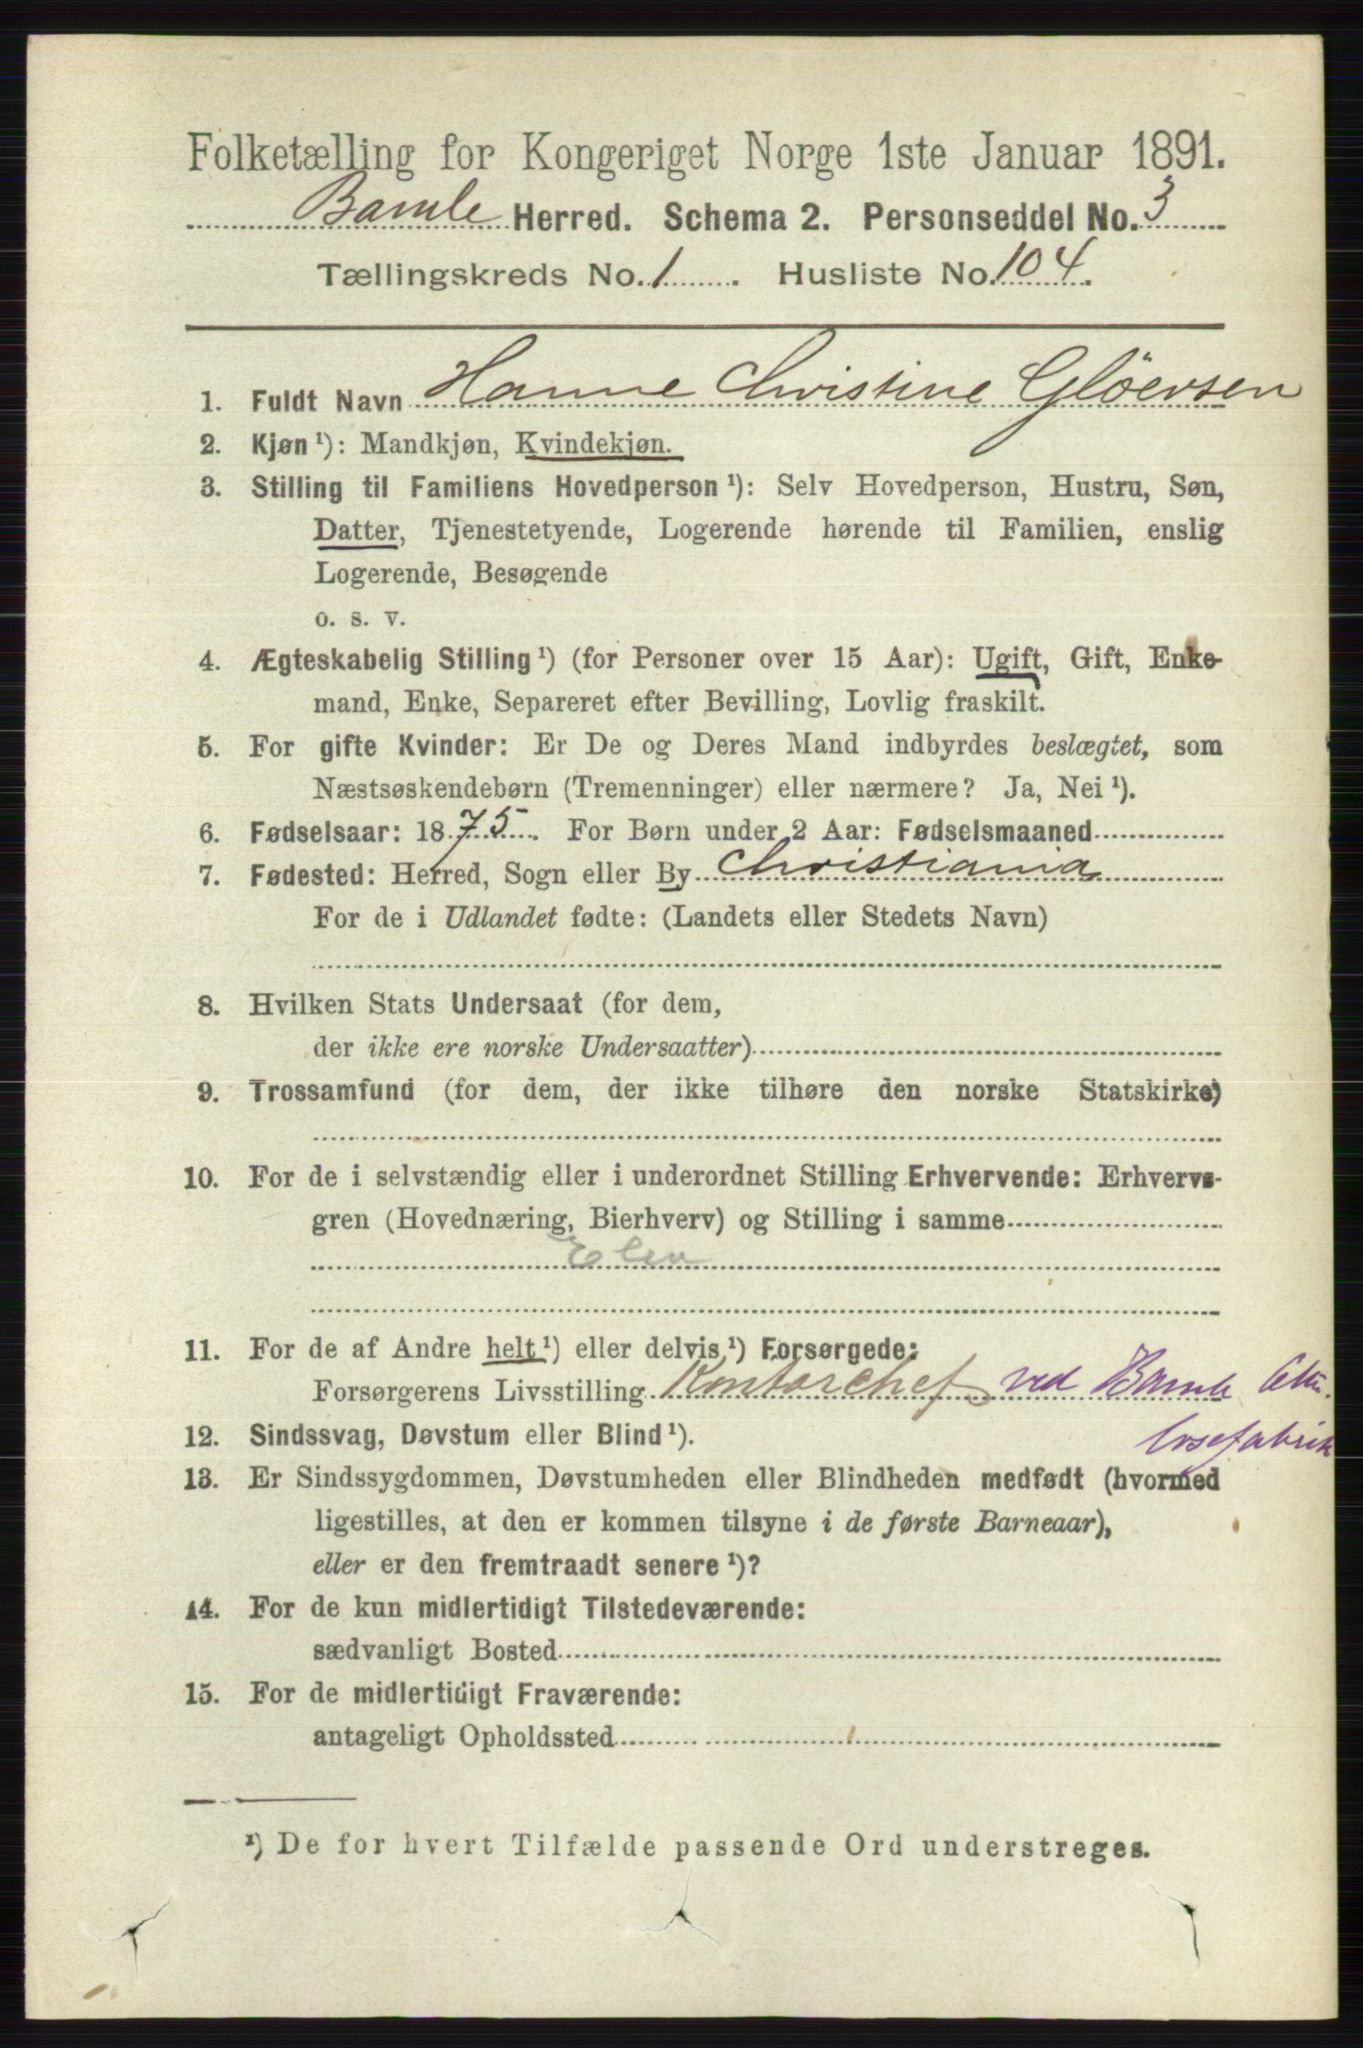 Folketælling for Kongeriget Norge 1ste Januar 1891.
Bamle Herred. Schema 2. Personseddel No. 3
Tællingskreds No. 1. Husliste No. 104.
1. Fuldt Navn Hanne Christine Gløersen
2. Kjøn ¹): Mandkjøn, Kvindekjøn.
3. Stilling til Familiens Hovedperson ¹): Selv Hovedperson, Hustru, Søn,
Datter, Tjenestetyende, Logerende hørende til Familien, enslig
Logerende, Besøgende
o. s. v.
4. Ægteskabelig Stilling ¹) (for Personer over 15 Aar): Ugift, Gift, Enke-
mand, Enke, Separeret efter Bevilling, Lovlig fraskilt.
5. For gifte Kvinder: Er De og Deres Mand indbyrdes beslægtet, som
Næstsøskendebørn (Tremenninger) eller nærmere? Ja, Nei ¹).
6. Fødselsaar: 1875. For Børn under 2 Aar: Fødselsmaaned
7. Fødested: Herred, Sogn eller By Christiania
For de i Udlandet fødte: (Landets eller Stedets Navn)
8. Hvilken Stats Undersaat (for dem,
der ikke ere norske Undersaatter)
9. Trossamfund (for dem, der ikke tilhøre den norske Statskirke)
10. For de i selvstændig eller i underordnet Stilling Erhvervende: Erhvervs-
gren (Hovednæring, Bierhverv) og Stilling i samme
Elev
11. For de af Andre helt ¹) eller delvis ¹) Forsørgede:
Forsørgerens Livsstilling Kontorchef ved Bamle
12. Sindssvag, Døvstum eller Blind ¹).
13. Er Sindssygdommen, Døvstumheden eller Blindheden medfødt (hvormed
ligestilles, at den er kommen tilsyne i de første Barneaar),
eller er den fremtraadt senere ¹)?
14. For de kun midlertidigt Tilstedeværende:
sædvanligt Bosted
15. For de midlertidigt Fraværende:
antageligt Opholdssted
¹) De for hvert Tilfælde passende Ord understreges.